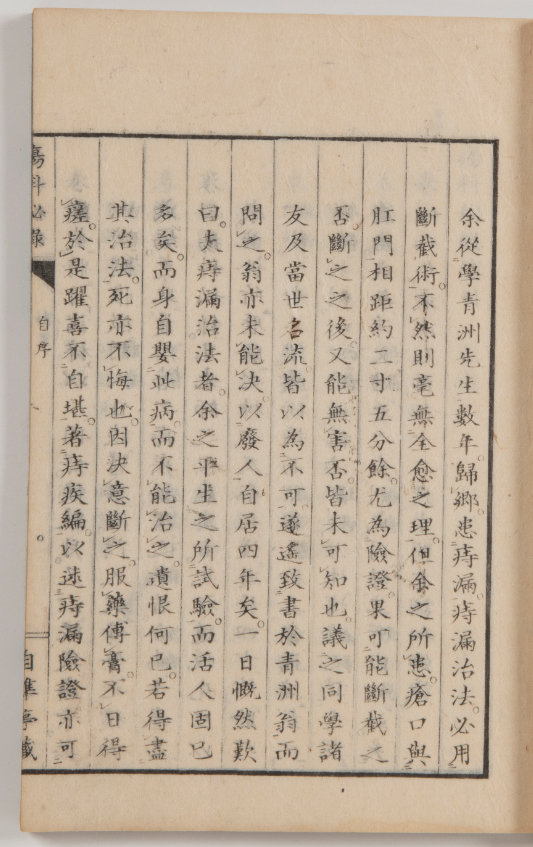 余從學青洲先生數年歸鄉患痔漏痔漏治法必用
斷截術不然則毫無全愈之理但余之所患瘡口與
肛門相距約二寸五分餘尤為險證果可能斷截之
否斷之之後又能無害否皆未可知也議之同學諸
友及當世名流皆以為不可遂遙致書於青洲翁而
問之翁亦未能決以廢人自居四年矣一日慨然歎
曰夫痔漏治法者余之平生之所試驗而活人固已
多矣而身自嬰此病而不能治之遺恨何已若得盡
其治法死亦不悔也因決意斷之服藥傅膏不日得
瘥於是躍喜不自堪著痔疾編以述痔漏險證亦可
瘍科必錄
自序
自準亭藏